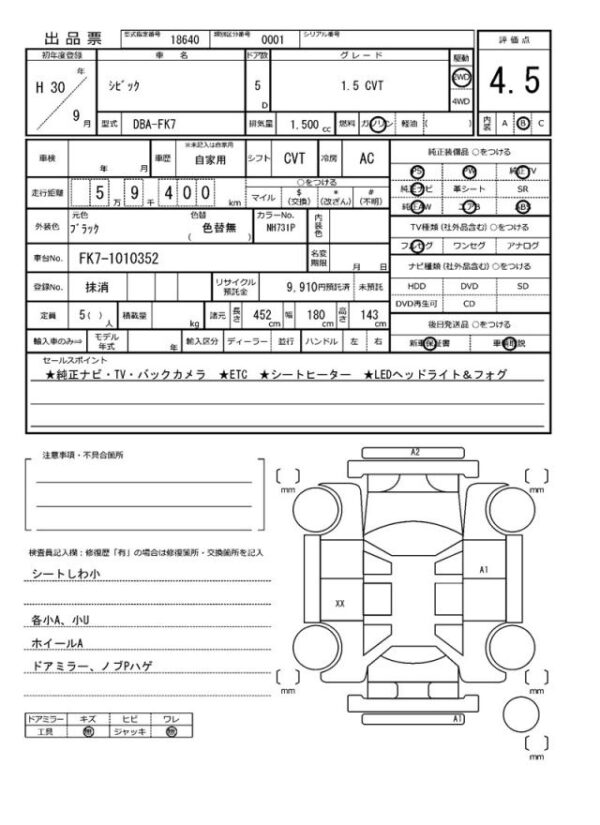 出品票 型式指定番号 18640 類別区分番号 0001 シリアル番号
評価点
4.5
内装 A B C
初年度登録 車名 ドア数 グレード 駆動
H 30 年 9 月 シビック 5 D 1.5 CVT 2WD 4WD
型式 DBA-FK7 排気量 1,500 cc 燃料 ガソリン 軽油 ( )
車検 年 月 車歴 ※未記入は自家用 自家用 シフト CVT 冷房 AC
純正装備品 ○をつける
PS PW 純正TV
純正ナビ 革シート SR
純正AW エアB ABS
走行距離 5 万 9 千 4 0 0 km ○をつける マイル $ (交換) * (改ざん) # (不明)
外装色 元色 ブラック 色替 ( 色替無 ) カラーNo. NH731P 内装色
TV種類 (社外品含む) ○をつける
フルセグ ワンセグ アナログ
車台No. FK7-1010352 名変期限 月 日
ナビ種類 (社外品含む) ○をつける
HDD DVD SD
DVD再生可 CD
登録No. 抹消 リサイクル預託金 9,910円預託済 未預託
定員 5( ) 人 積載量 kg 諸元 長さ 452 cm 幅 180 cm 高さ 143 cm
後日発送品 ○をつける
新車保証書 車輌取説
輸入車のみ⇒ モデル年式 年 輸入区分 ディーラー 並行 ハンドル 左 右
セールスポイント
★純正ナビ・TV・バックカメラ ★ETC ★シートヒーター ★LEDヘッドライト&フォグ
注意事項・不具合箇所
検査員記入欄：修復歴「有」の場合は修復箇所・交換箇所を記入
シートしわ小
各小A、小U
ホイールA
ドアミラー、ノブPハゲ
ドアミラー キズ ヒビ ワレ
工具 無 ジャッキ 無
A2
mm
mm
A1
XX
mm
mm
A1
mm